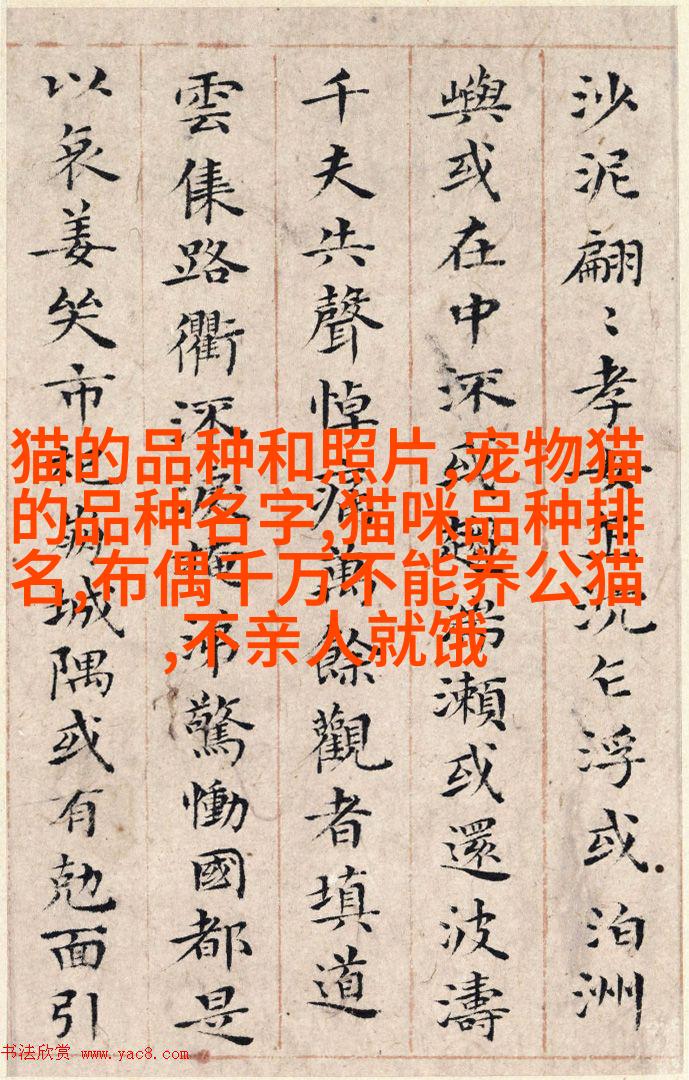 沙泥翩〻孝女沉乍浮或泊洲
嶼或在中流或趨湍瀨或還波濤
千夫失聲悼痛萬餘觀者填道
雲集路衢流淚掩涕驚慟國都是
以哀姜哭市杞崩城隅或有尅面引
猫的品种和照片,宠物猫
的品种名字,猫咪品种排
名,布偶千万不能养公猫
,不亲人就饿
书法欣赏 www.yac8.com